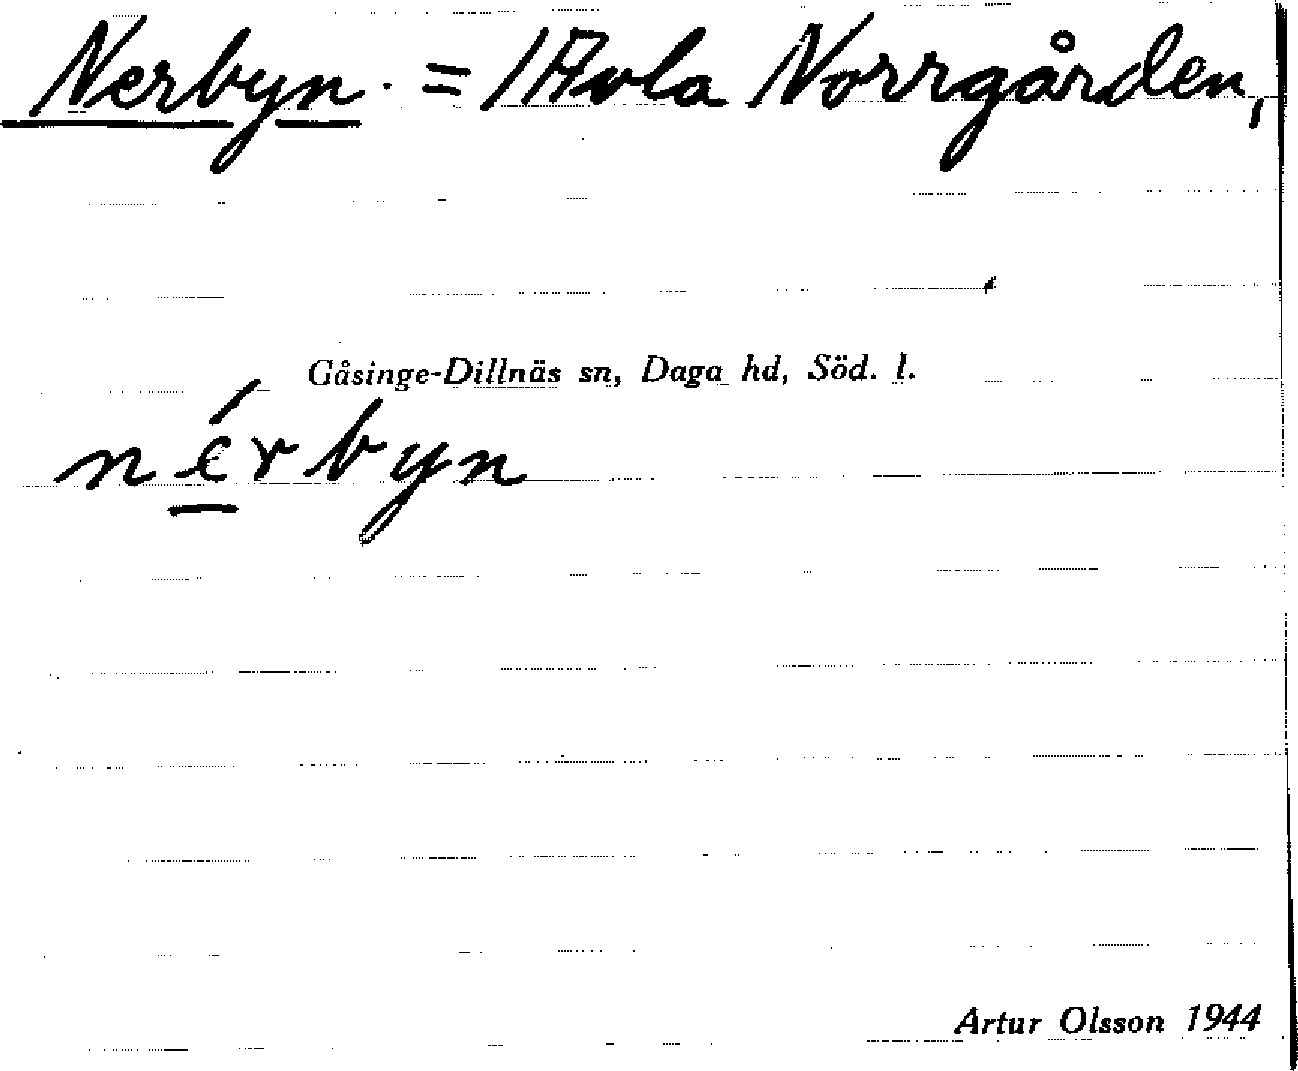 Nerbyn. = / Avla Norrgården,
Gåsinge-Dillnäs sn, Daga hd, Söd. l.
nérbyn
Artur Olsson 1944